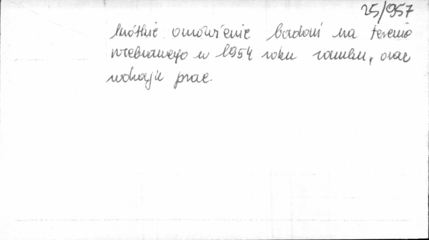 25/957
krótkie omówienie badań na terenie
w 1954 roku zamku, oraz
rodzaju prac.